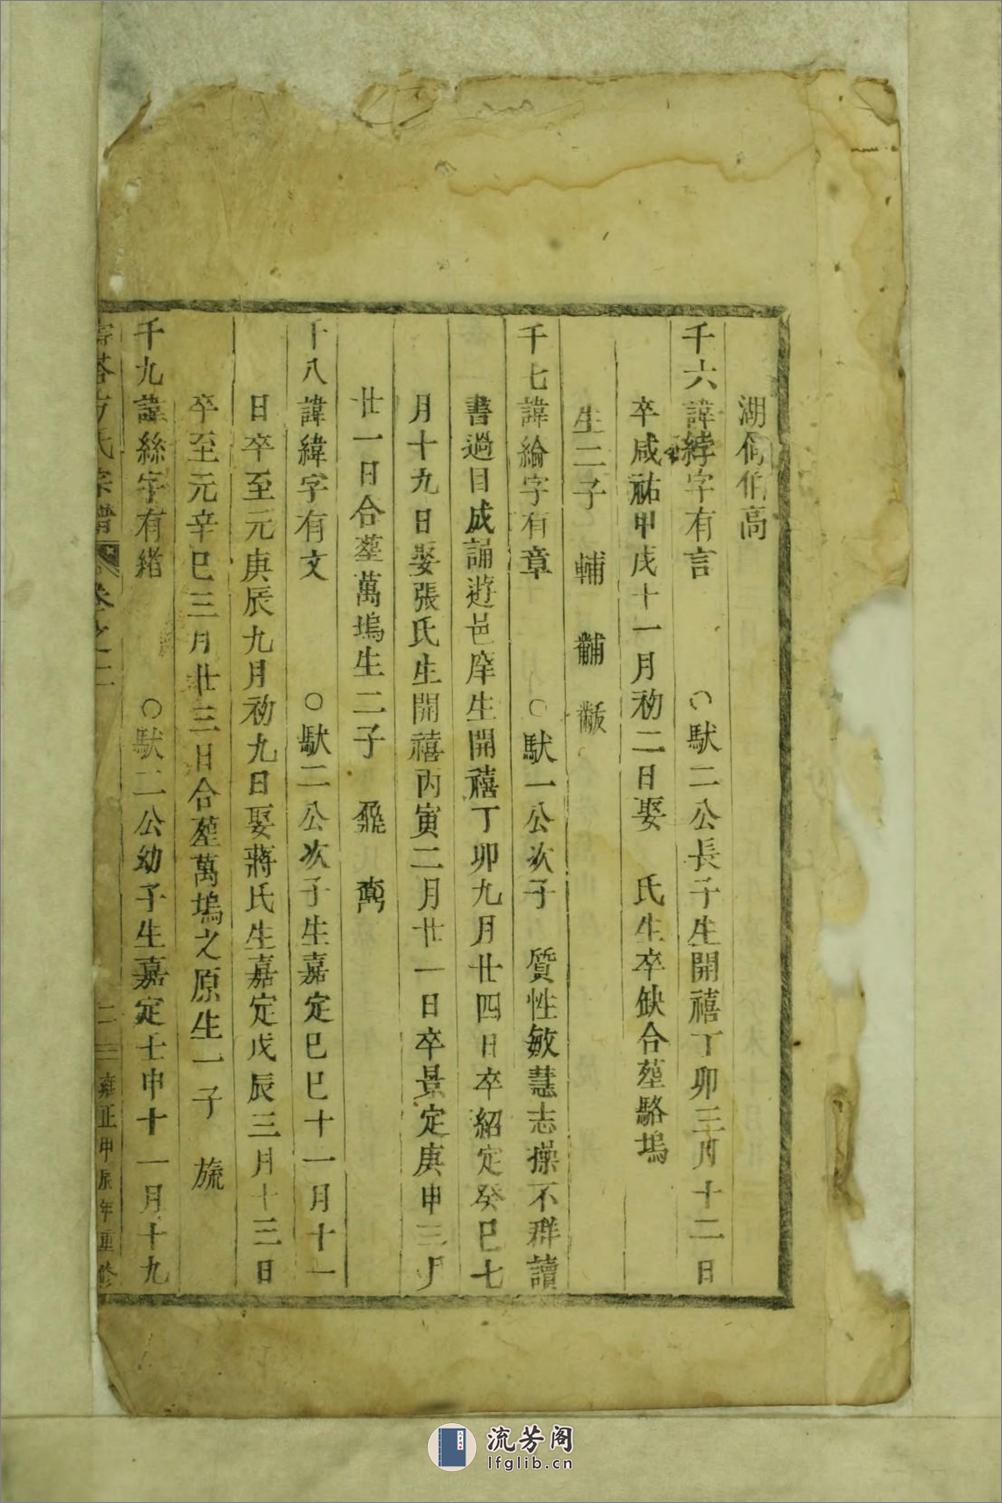 湖儁伯高
千六諱綍字有言 ○馱二公長子生開禧丁卯三月十二日
卒咸祐甲戌十一月初二日娶 氏生卒缺合塟駱塢
生二子 輔 黼 黻
千七諱綸字有章 ○馱一公次子 質性敏慧志操不群讀
書過目成誦遊邑庠生開禧丁卯九月廿四日卒紹定癸巳七
月十九日娶張氏生開禧丙寅二月廿一日卒景定庚申三月
廿一日合塟萬塢生二子 飛 騫
十八諱緯字有文 ○馱二公次子生嘉定己巳十一月十一
日卒至元庚辰九月初九日娶蔣氏生嘉定戊辰三月十三日
卒至元辛巳三月廿三日合塟萬塢之原生一子 旒
千九諱絲字有緒 ○馱二公幼子生嘉定壬申十一月十九
塔方氏宗譜 卷之二 二三 雍正甲辰年重修
流芳阁
lfglib.cn